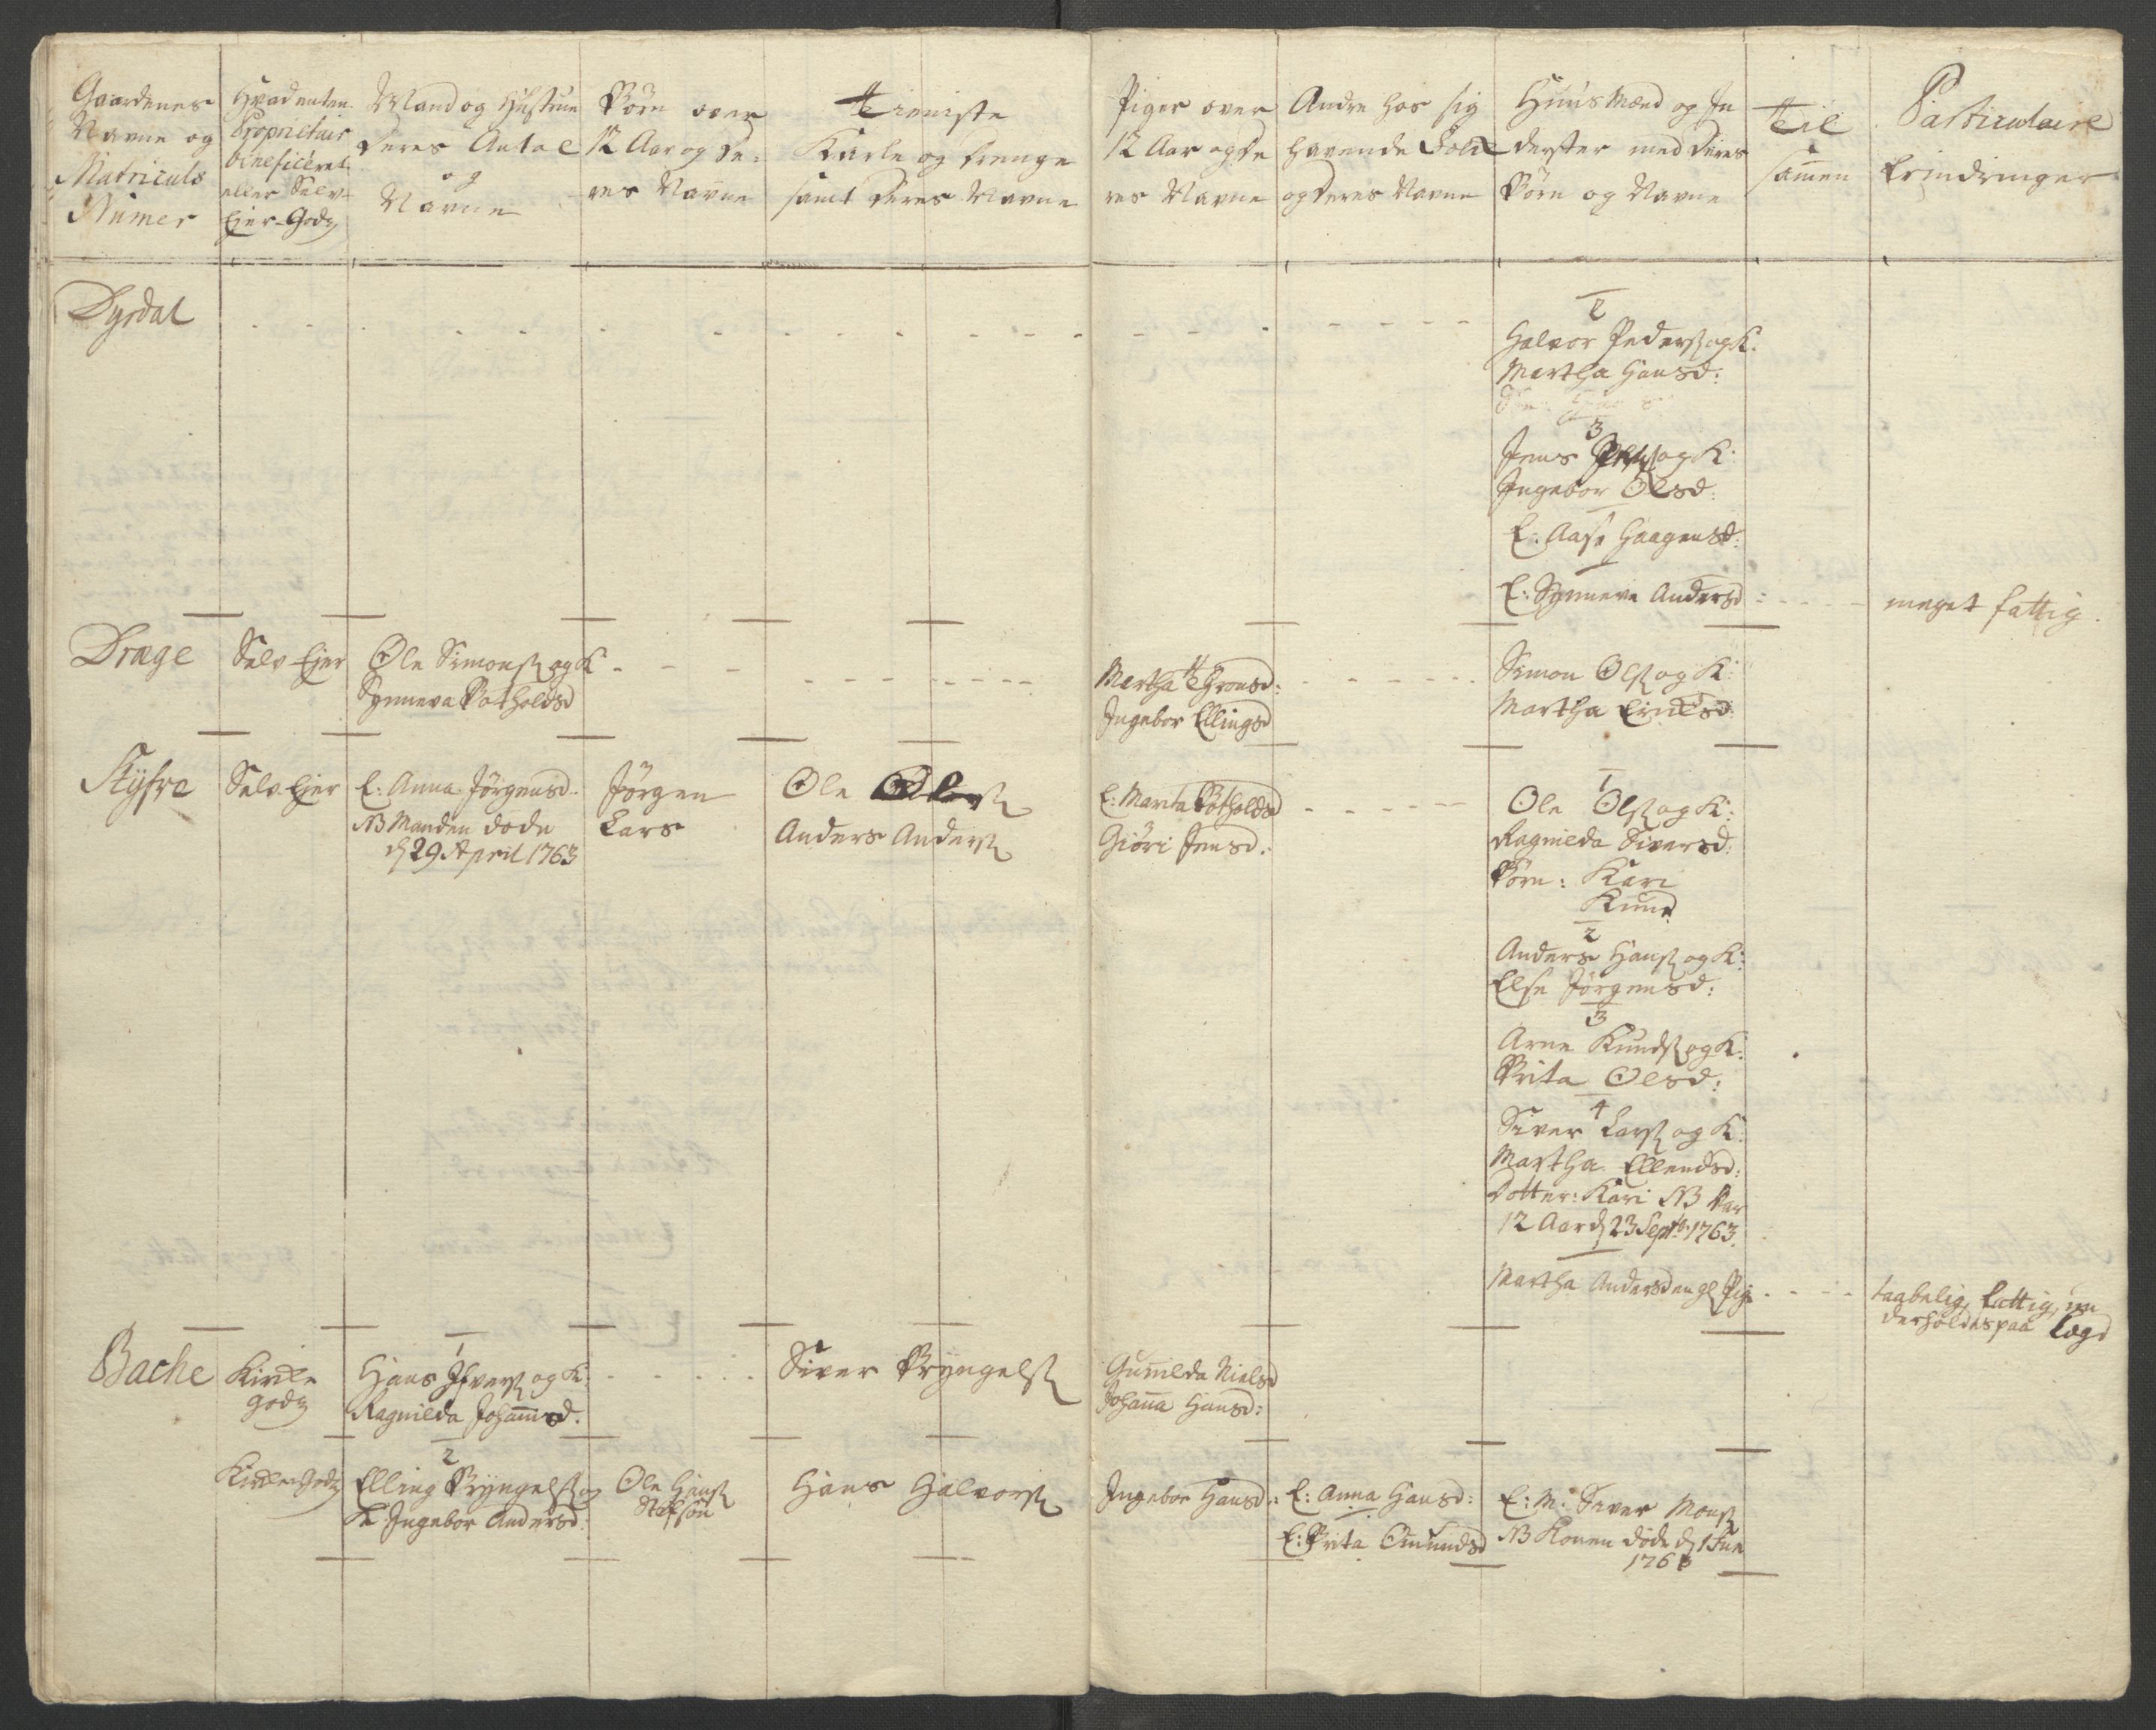 Gaardenes
Navne og
Matriculs
Numer
Hvad enten
Proprietair
beneficeret
eller Selv-
Ejer-Godz
Mand og Hustrue
deres Antal
og
Navne
Börn over
12 Aar og de-
res Navne
Tieniste
Karle og Drenge
samt deres Navne
Piger over
12 Aar og de
res Navne
Andre hos sig
havende Folk
og deres Navne
Huus Mænd og In
derster med deres
Börn og Navne
Til
sam̄en
Particulaire
Erindringer
Dysdal
2
Halvor Peders. og K.
Martha Hansd:
3
Jens og K:
Ingebor Olsd:
E: Aase Haagensd:
E: Synneva Andersd:
meget fattig.
Drage
Selv-Ejer
Ole Simons. og K
Synneva Botholdsd
Martha Thronsd:
Ingebor Ellingsd
Simon Ols. og K:
Martha Ericksd:
Kysre
Selv-Ejer
E: Anna Jörgensd:
NB Manden döde
d. 29 April 1763
Jörgen
Lars
Ole
Anders Anders.
E: Marita Botholdsd
Giöri Jensd:
1
Ole Ols. og K:
Ragnilda Siversd:
Börn: Kari
Knud
2
Anders Hans. og K:
Else Jörgensd:
3
Arne Knuds. og K:
Brita Olsd:
4
Siver Lars. og K:
Martha Ellendsd:
Dotter: Kari NB var
12 Aar d. 23 Septbr. 1763.
Martha Andersd en gl. Pige
taabelig, fattig, un
derholdes paa Lægd
Bache
Kircke
godz
1
Hans Ifvers. og K:
Ragnilda Johannesd.
Siver Bryngels.
Gunnilda Nielsd
Johan̄a Hansd:
Kircke-Godz
2
Elling Bryngels. og
K. Ingebor Andersd:
Ole Hans.
Stifsön
Hans Halvors.
Ingebor Hansd:
E: Anna Hansd:
E: Brita Omundsd
E: M: Siver Mons.
NB Konen döde d. 1 Jun
176